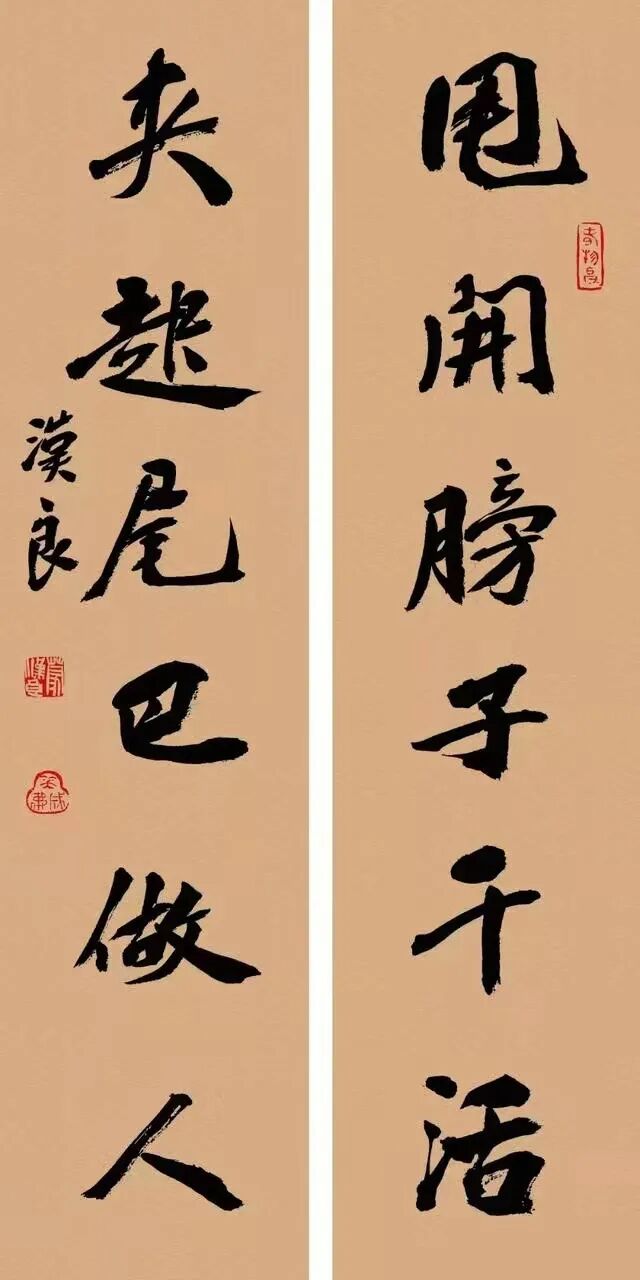 甩開膀子干活
夹起尾巴做人
漢良